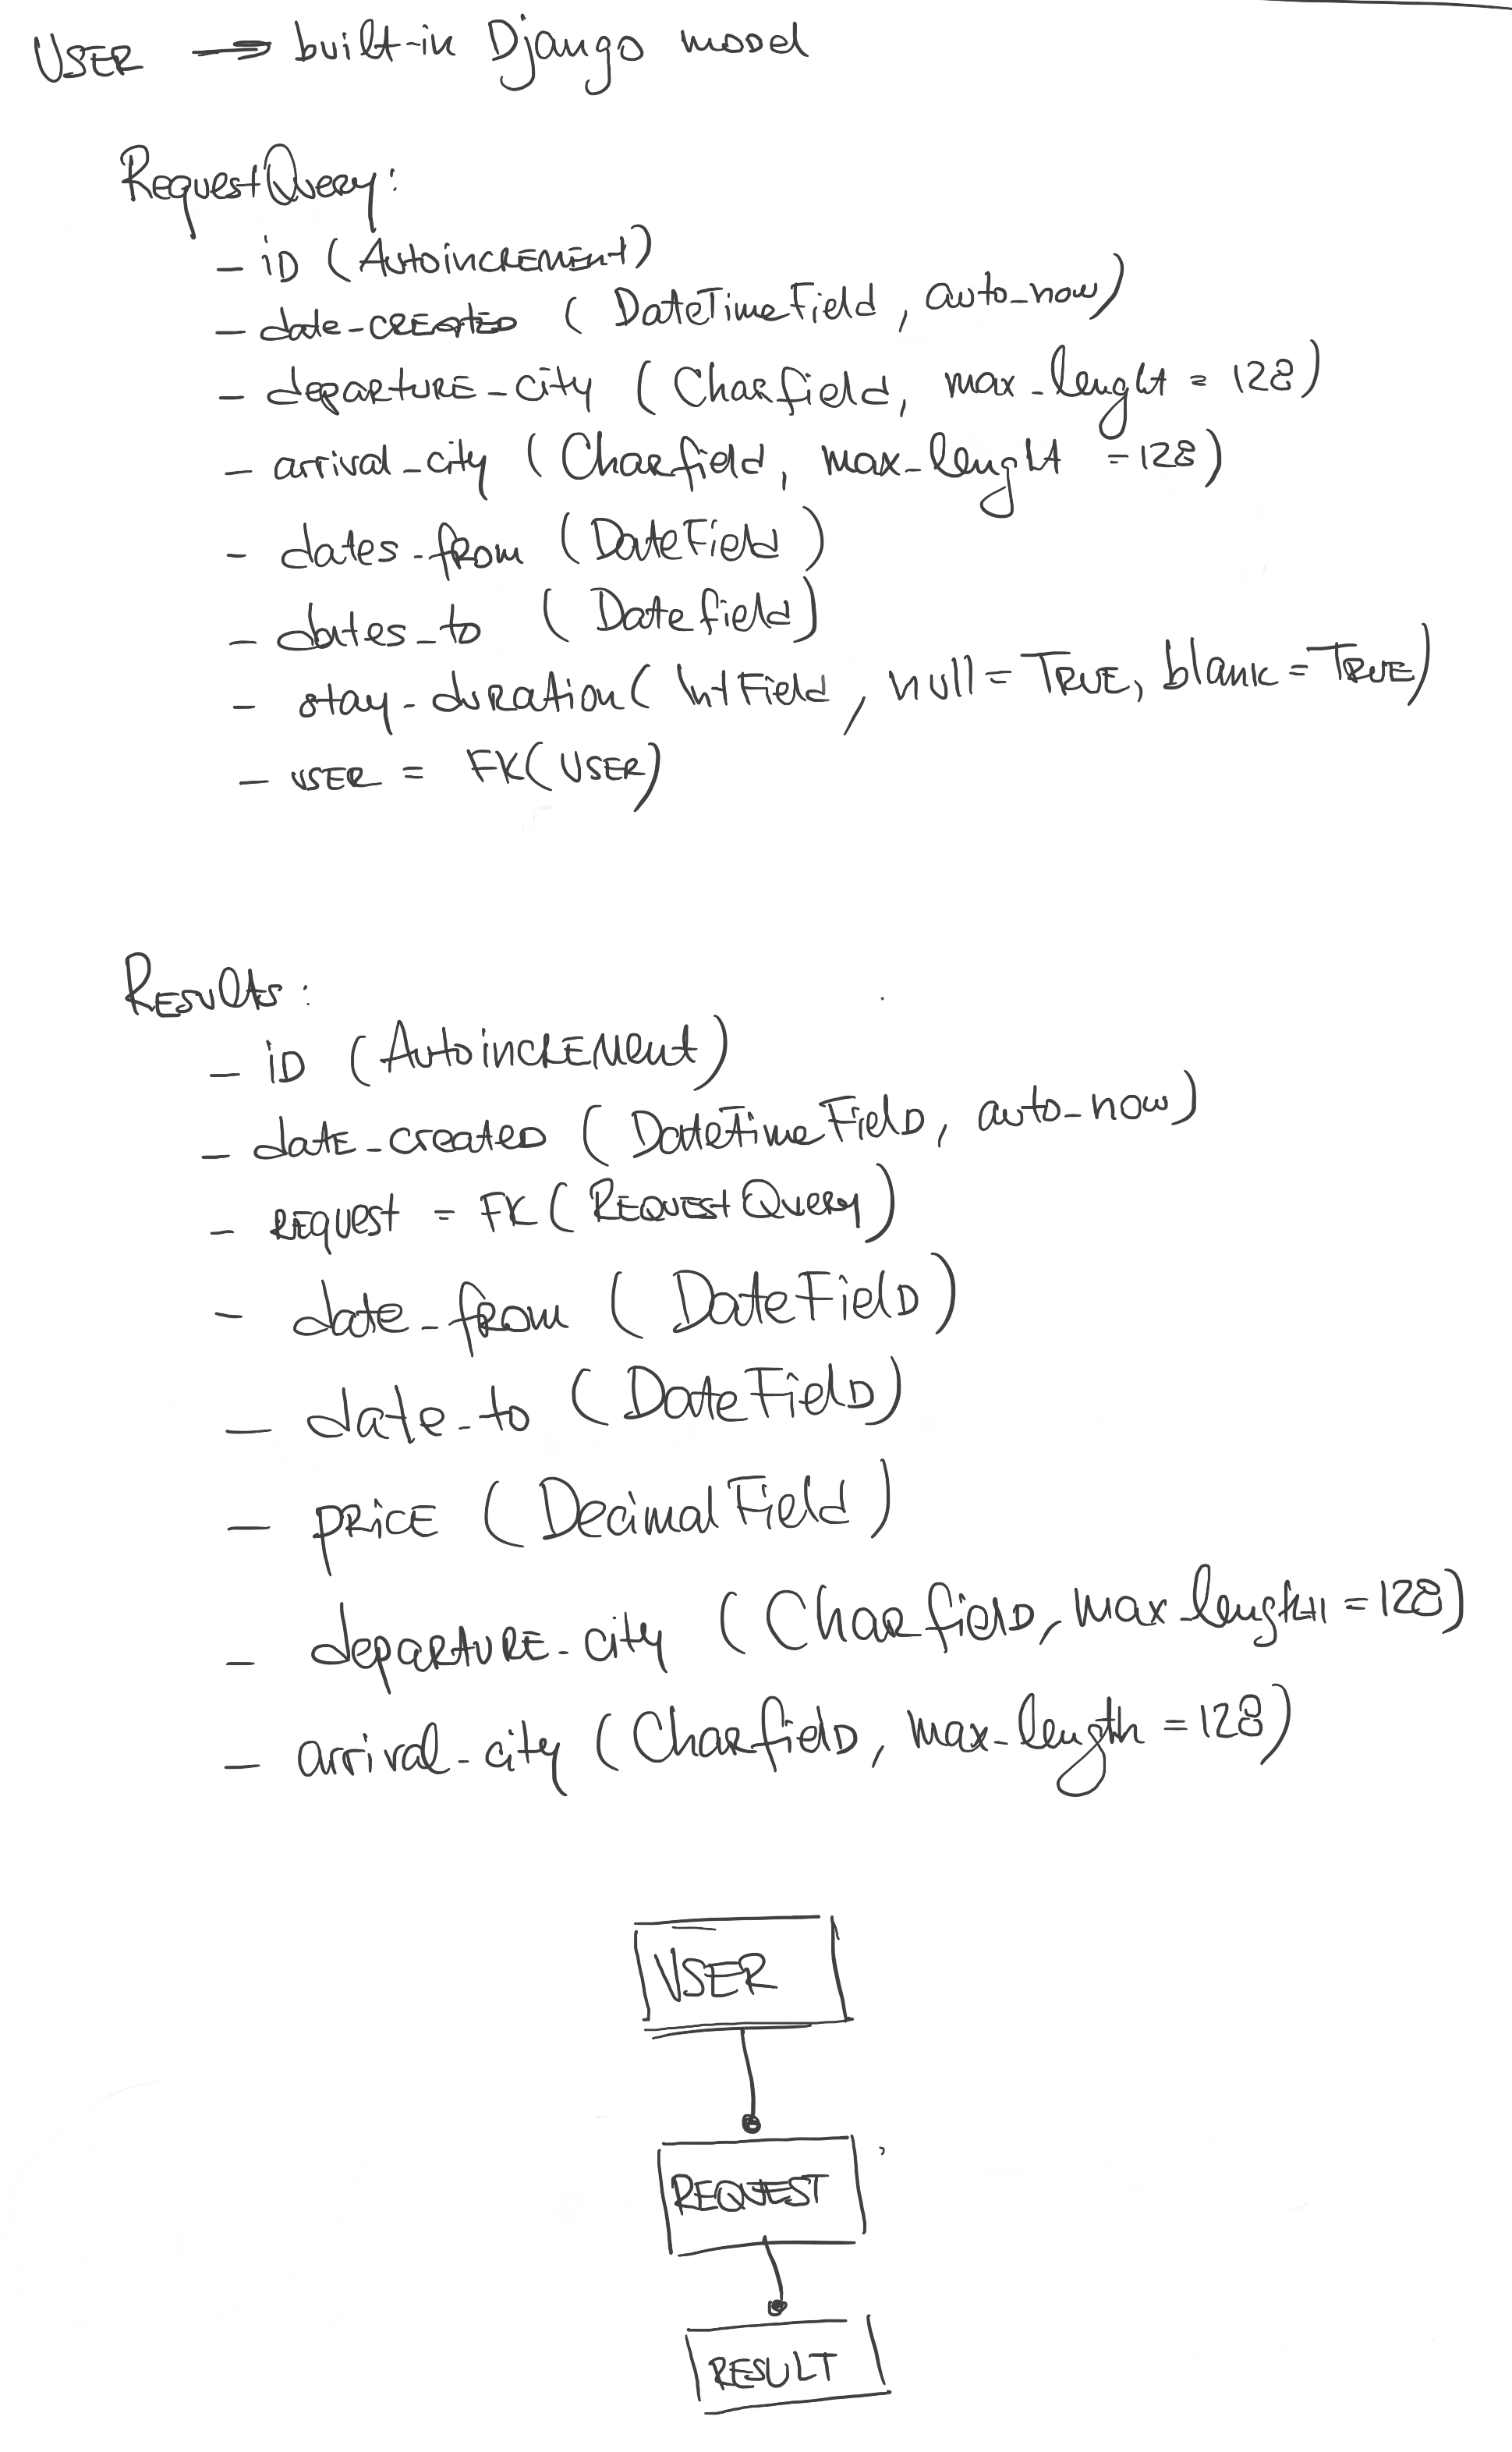 USER → built-in Django model
RequestQuery:
- iD (Autoincrement)
- date-created (DateTimeField, auto-now)
- departure-city (Charfield, max-lenght = 128)
- arrival-city (Charfield, max-lenght = 128)
- dates-from (DateField)
- dates-to (Datefield)
- stay-duration (IntField, null = True, blank = True)
- user = FK(USER)
Results:
- iD (Autoincrement)
- date-created (DatetimeField, auto-now)
- request = FK(RequestQuery)
- date-from (DateField)
- date-to (DateField)
- price (DecimalField)
- departure-city (Charfield, max-length = 128)
- arrival-city (Charfield, max-length = 128)
USER
REQUEST
RESULT